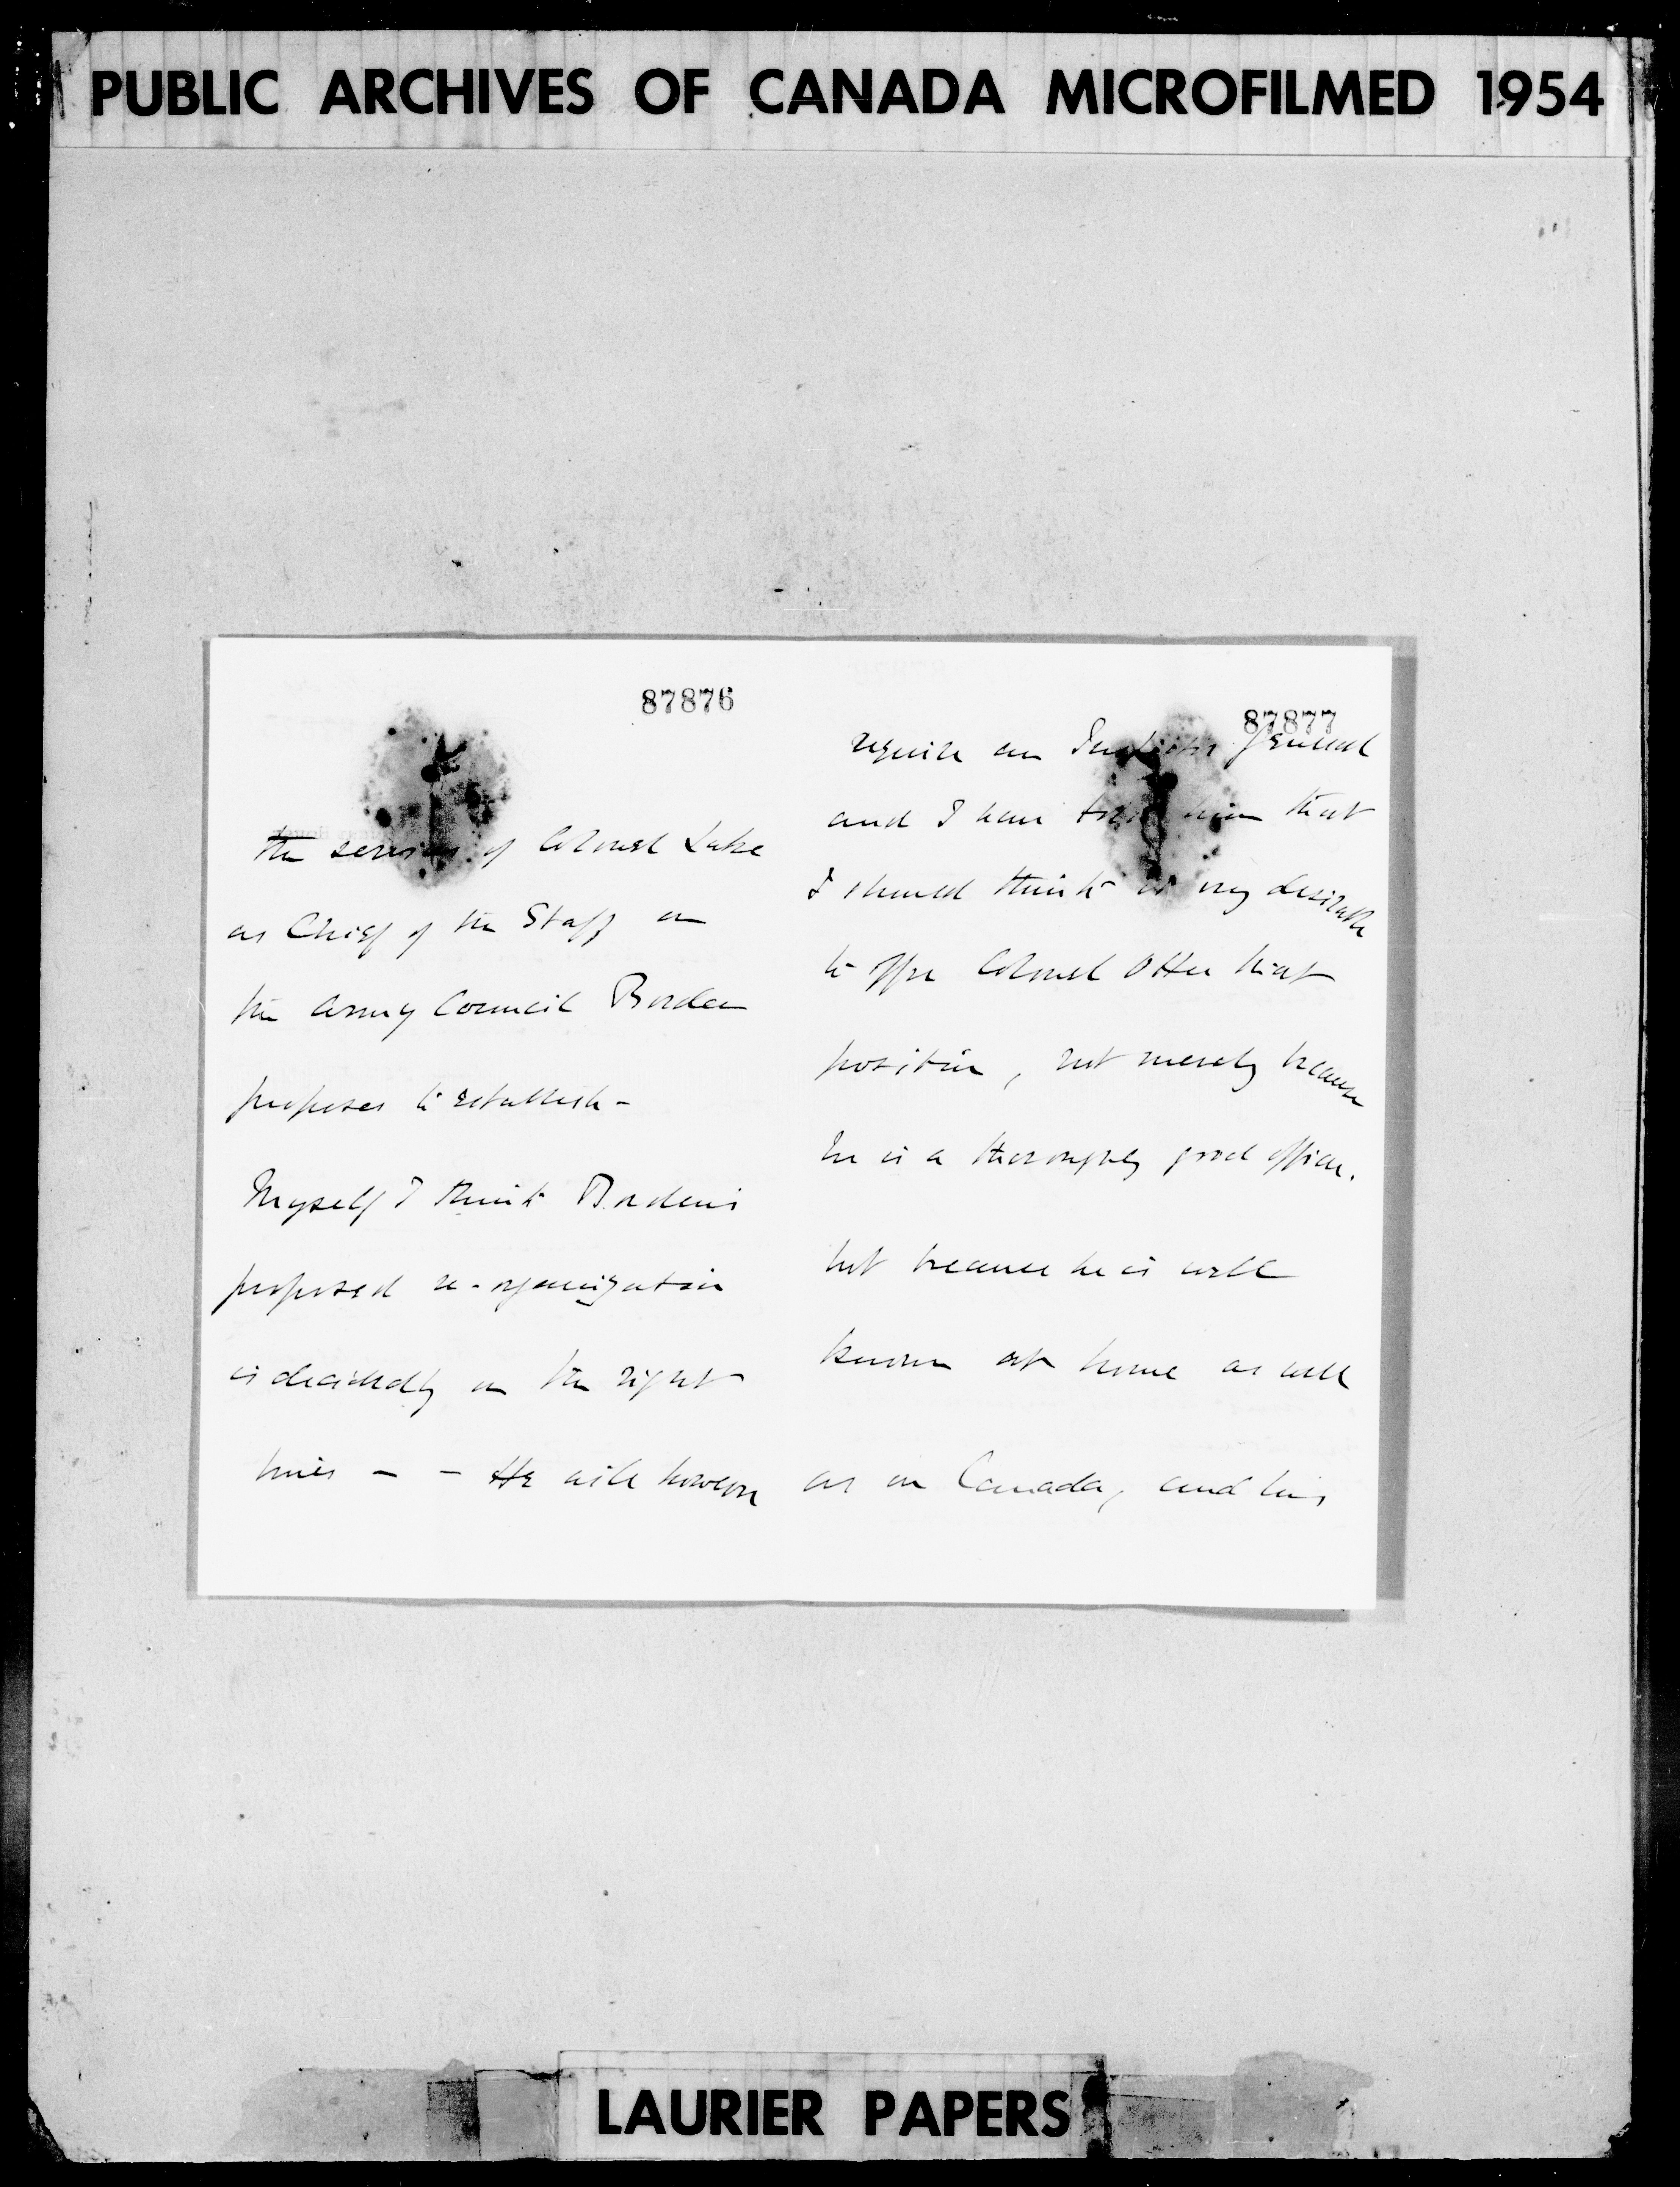 PUBLIC ARCHIVES OF CANADA MICROFILMED 1954
87876
the services of Colonel Lake
as Chief of the Staff on
the Army Council Borden
proposes to establish -
Myself I think Borden's
proposed re-organization
is decidedly on the right
lines - - He will however
87877
require an Inspector General
and I have told him that
I should think it very desirable
to offer Colonel Otter that
position, not merely because
he is a thoroughly good officer.
but because he is well
known at home as well
as in Canada, and his
LAURIER PAPERS